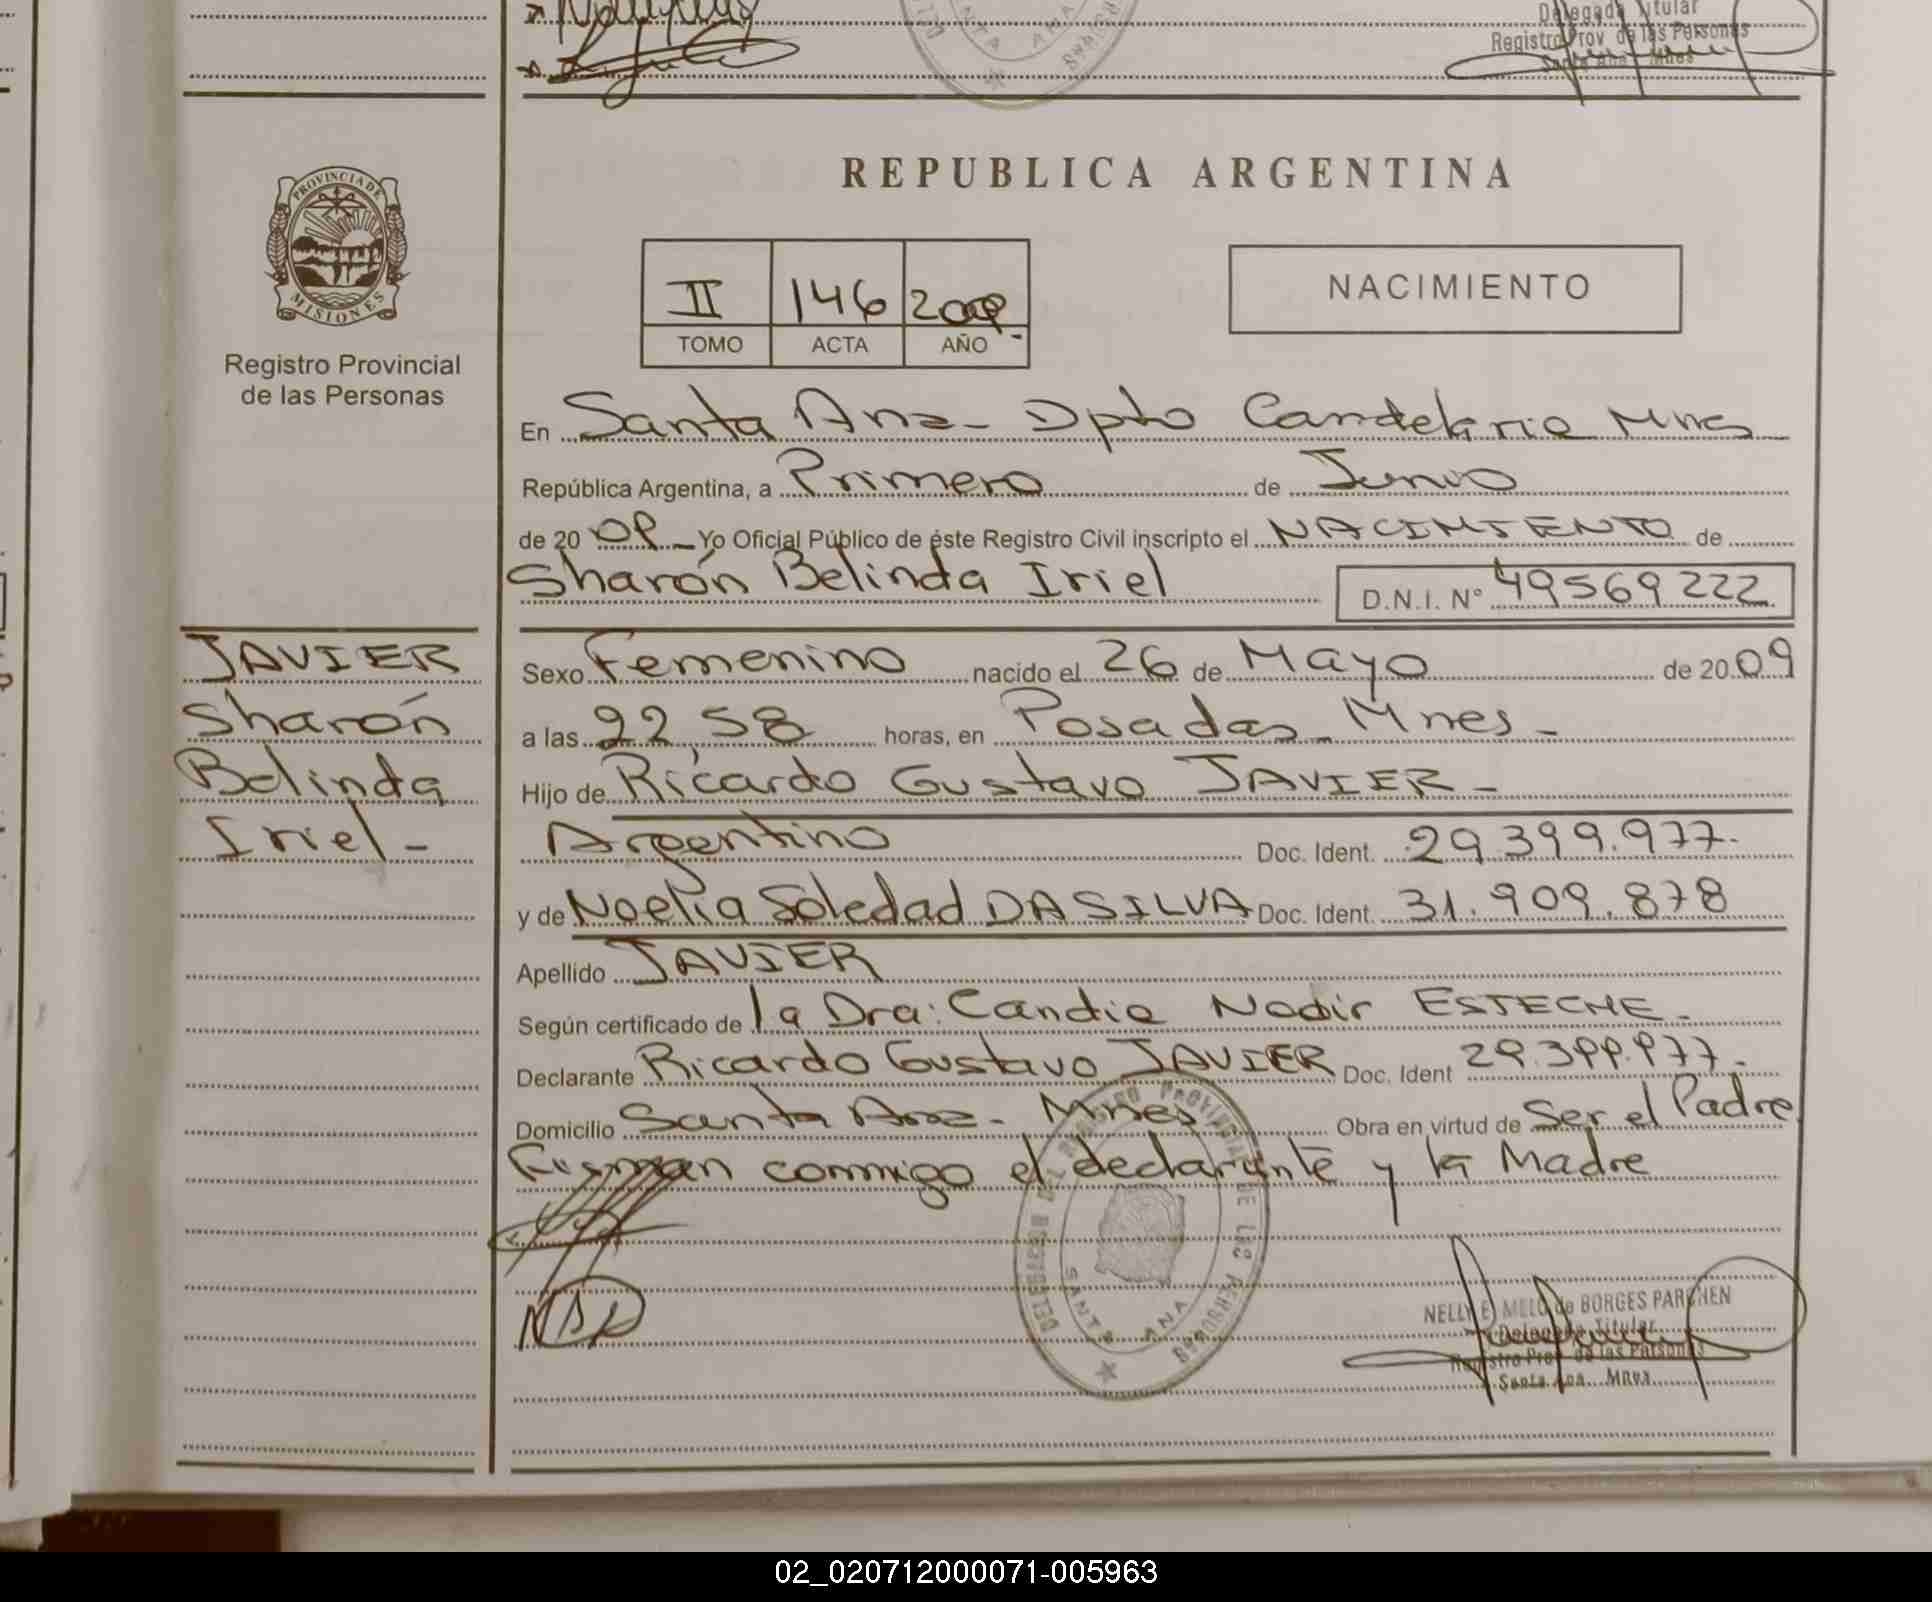 Delegada Titular
Registro Prov. de las Personas
Santa Ana Mnes
PROVINCIA DE
MISIONES
Registro Provincial
de las Personas
REPUBLICA ARGENTINA
II 146 2009
TOMO ACTA AÑO
NACIMIENTO
En Santa Ana - Dpto Candelaria Mnes
República Argentina, a Primero de Junio
de 20 09 Yo Oficial Público de éste Registro Civil inscripto el NACIMIENTO de
Sharón Belinda Iriel D.N.I. N° 49569222
JAVIER
Sharón
Belinda
Iriel -
Sexo Femenino nacido el 26 de Mayo de 20 09
a las 22,58 horas, en Posadas - Mnes -
Hijo de Ricardo Gustavo JAVIER -
Argentino Doc. Ident. 29.399.977.
y de Noelia Soledad DA SILVA Doc. Ident. 31.909.878
Apellido JAVIER
Según certificado de la Dra: Candia Nadir ESTECHE -
Declarante Ricardo Gustavo JAVIER Doc. Ident 29.399.977 -
Domicilio Santa Ana - Mnes Obra en virtud de Ser el Padre
Firman conmigo el declarante y la Madre
DELEGACION DEL REGISTRO PROVINCIAL DE LAS PERSONAS
SANTA ANA
NELLY E. MELO de BORGES PARCHEN
Delegada Titular
Registro Prov. de las Personas
Santa Ana Mnes
02_020712000071-005963